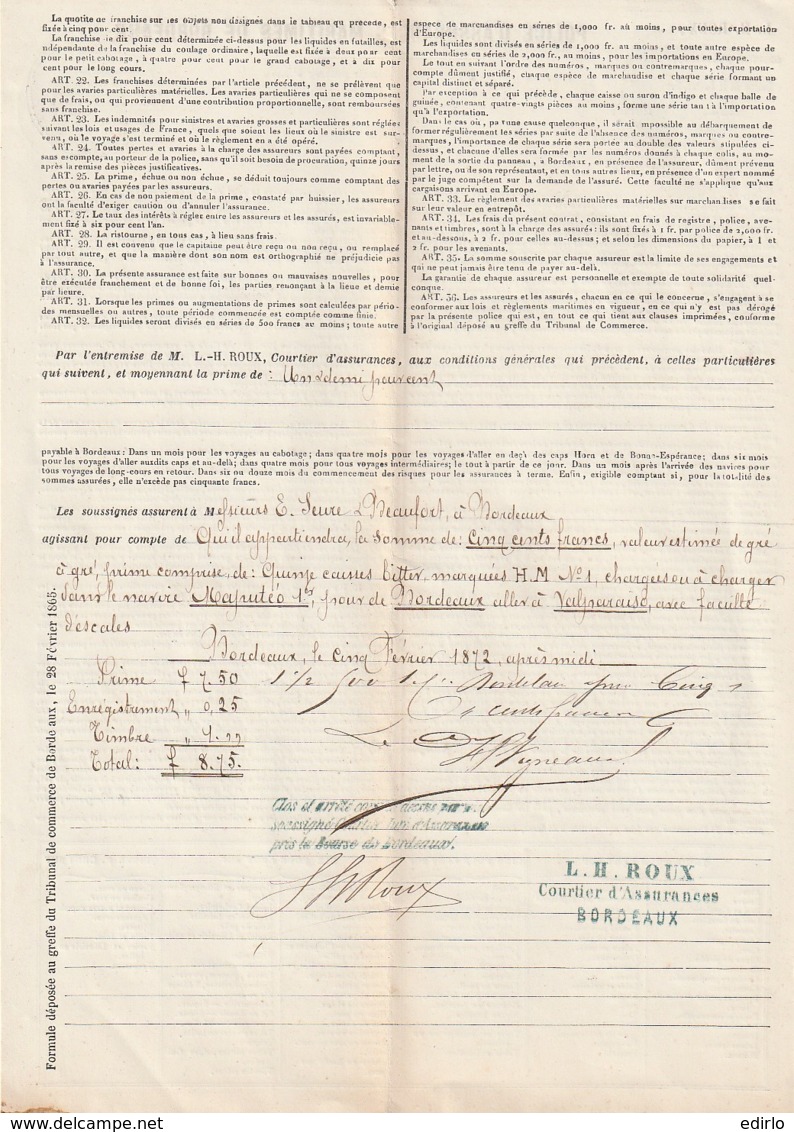 La quotité de franchise sur les objets non désignés dans le tableau qui précède, est
fixée à cinq pour cent.
La franchise de dix pour cent déterminée ci-dessus pour les liquides en futailles, est
indépendante de la franchise du coulage ordinaire, laquelle est fixée à deux pour cent
pour le petit cabotage, à quatre pour cent pour le grand cabotage, et à dix pour
cent pour le long cours.
ART. 22. Les franchises déterminées par l'article précédent, ne se prélèvent que
pour les avaries particulières matérielles. Les avaries particulières qui ne se composent
que de frais, ou qui proviennent d'une contribution proportionnelle, sont remboursées
sans franchise.
ART. 23. Les indemnités pour sinistres et avaries grosses et particulières sont réglées
suivant les lois et usages de France, quels que soient les lieux où le sinistre est sur-
venu, où le voyage s'est terminé et où le règlement en a été opéré.
ART. 24. Toutes pertes et avaries à la charge des assureurs sont payées comptant,
sans escompte, au porteur de la police, sans qu'il soit besoin de procuration, quinze jours
après la remise des pièces justificatives.
ART. 25. La prime, échue ou non échue, se déduit toujours comme comptant des
pertes ou avaries payées par les assureurs.
ART. 26. En cas de non paiement de la prime, constaté par huissier, les assureurs
ont la faculté d'exiger caution ou d'annuler l'assurance.
ART. 27. Le taux des intérêts à régler entre les assureurs et les assurés, est invariable-
ment fixé à six pour cent l'an.
ART. 28. La ristourne, en tous cas, a lieu sans frais.
ART. 29. Il est convenu que le capitaine peut être reçu ou non reçu, ou remplacé
par tout autre, et que la manière dont son nom est orthographié ne préjudicie pas
à l'assurance.
ART. 30. La présente assurance est faite sur bonnes ou mauvaises nouvelles, pour
être exécutée franchement et de bonne foi, les parties renonçant à la lieue et demie
par heure.
ART. 31. Lorsque les primes ou augmentations de primes sont calculées par pério-
des mensuelles ou autres, toute période commencée est comptée comme finie.
ART. 32. Les liquides seront divisés en séries de 500 francs au moins; toute autre
espèce de marchandises en séries de 1,000 fr. au moins, pour toutes exportation
d'Europe.
Les liquides sont divisés en séries de 1,000 fr. au moins, et toute autre espèce de
marchandises en séries de 2,000 fr., au moins, pour les importations en Europe.
Le tout en suivant l'ordre des numéros, marques ou contremarques, chaque pour-
compte dûment justifié, chaque espèce de marchandise et chaque série formant un
capital distinct et séparé.
Par exception à ce qui précède, chaque caisse ou suron d'indigo et chaque balle de
guinée, contenant quatre-vingts pièces au moins, forme une série tant à l'importation
qu'à l'exportation.
Dans le cas où, par une cause quelconque, il serait impossible au débarquement de
former régulièrement les séries par suite de l'absence des numéros, marques ou contre-
marques, l'importance de chaque série sera portée au double des valeurs stipulées ci-
dessus, et chacune d'elles sera formée par les numéros donnés à chaque colis, au mo-
ment de la sortie du panneau, à Bordeaux, en présence de l'assureur, dûment prévenu
par lettre, ou de son représentant, et en tous autres lieux, en présence d'un expert nommé
par le juge compétent sur la demande de l'assuré. Cette faculté ne s'applique qu'aux
cargaisons arrivant en Europe.
ART. 33. Le règlement des avaries particulières matérielles sur marchandises se fait
sur leur valeur en entrepôt.
ART. 34. Les frais du présent contrat, consistant en frais de registre, police, ave-
nants et timbres, sont à la charge des assurés: ils sont fixés à 1 fr. par police de 2,000 fr.
et au-dessous, à 2 fr. pour celles au-dessus; et selon les dimensions du papier, à 1 et
2 fr. pour les avenants.
ART. 35. La somme souscrite par chaque assureur est la limite de ses engagements et
qui ne peut jamais être tenu de payer au-delà.
La garantie de chaque assureur est personnelle et exempte de toute solidarité quel-
conque.
ART. 36. Les assureurs et les assurés, chacun en ce qui le concerne, s'engagent à se
conformer aux lois et règlements maritimes en vigueur, en ce qui n'y est pas dérogé
par la présente police qui est, en tout ce qui tient aux clauses imprimées, conforme
à l'original déposé au greffe du Tribunal de Commerce.
Par l'entremise de M. L.-H. ROUX, Courtier d'assurances, aux conditions générales qui précèdent, à celles particulières
qui suivent, et moyennant la prime de: Un & demi pour cent
payable à Bordeaux: Dans un mois pour les voyages au cabotage; dans quatre mois pour les voyages d'aller en deçà des caps Horn et de Bonne-Espérance; dans six mois
pour les voyages d'aller auxdits caps et au-delà; dans quatre mois pour tous voyages intermédiaires; le tout à partir de ce jour. Dans un mois après l'arrivée des navires pour
tous voyages de long-cours en retour. Dans six ou douze mois du commencement des risques pour les assurances à terme. Enfin, exigible comptant si, pour la totalité des
sommes assurées, elle n'excède pas cinquante francs.
Les soussignés assurent à Messieurs E. Seure & Beaufort, à Bordeaux
agissant pour compte de Qui il appartiendra, la somme de: Cinq cents francs, valeur estimée de gré
à gré, prime comprise, de: Quinze caisses bitter, marquées H.M N°1, chargées ou à charger
dans le navire Maputéo 1er, pour de Bordeaux aller à Valparaiso, avec faculté
d'escales
Bordeaux, le cinq Février 1872, après midi
Prime f 7.50
Enregistrement " 0,25
Timbre " 1.""
Total: f 8.75.
1 1/2 500
Clos et arrêté
soussigné Courtier Juré d'Assurances
près la Bourse de Bordeaux.
LHRoux
L. H. ROUX
Courtier d'Assurances
BORDEAUX
Formule déposée au greffe du Tribunal de commerce de Bordeaux, le 28 Février 1865.
edirlo